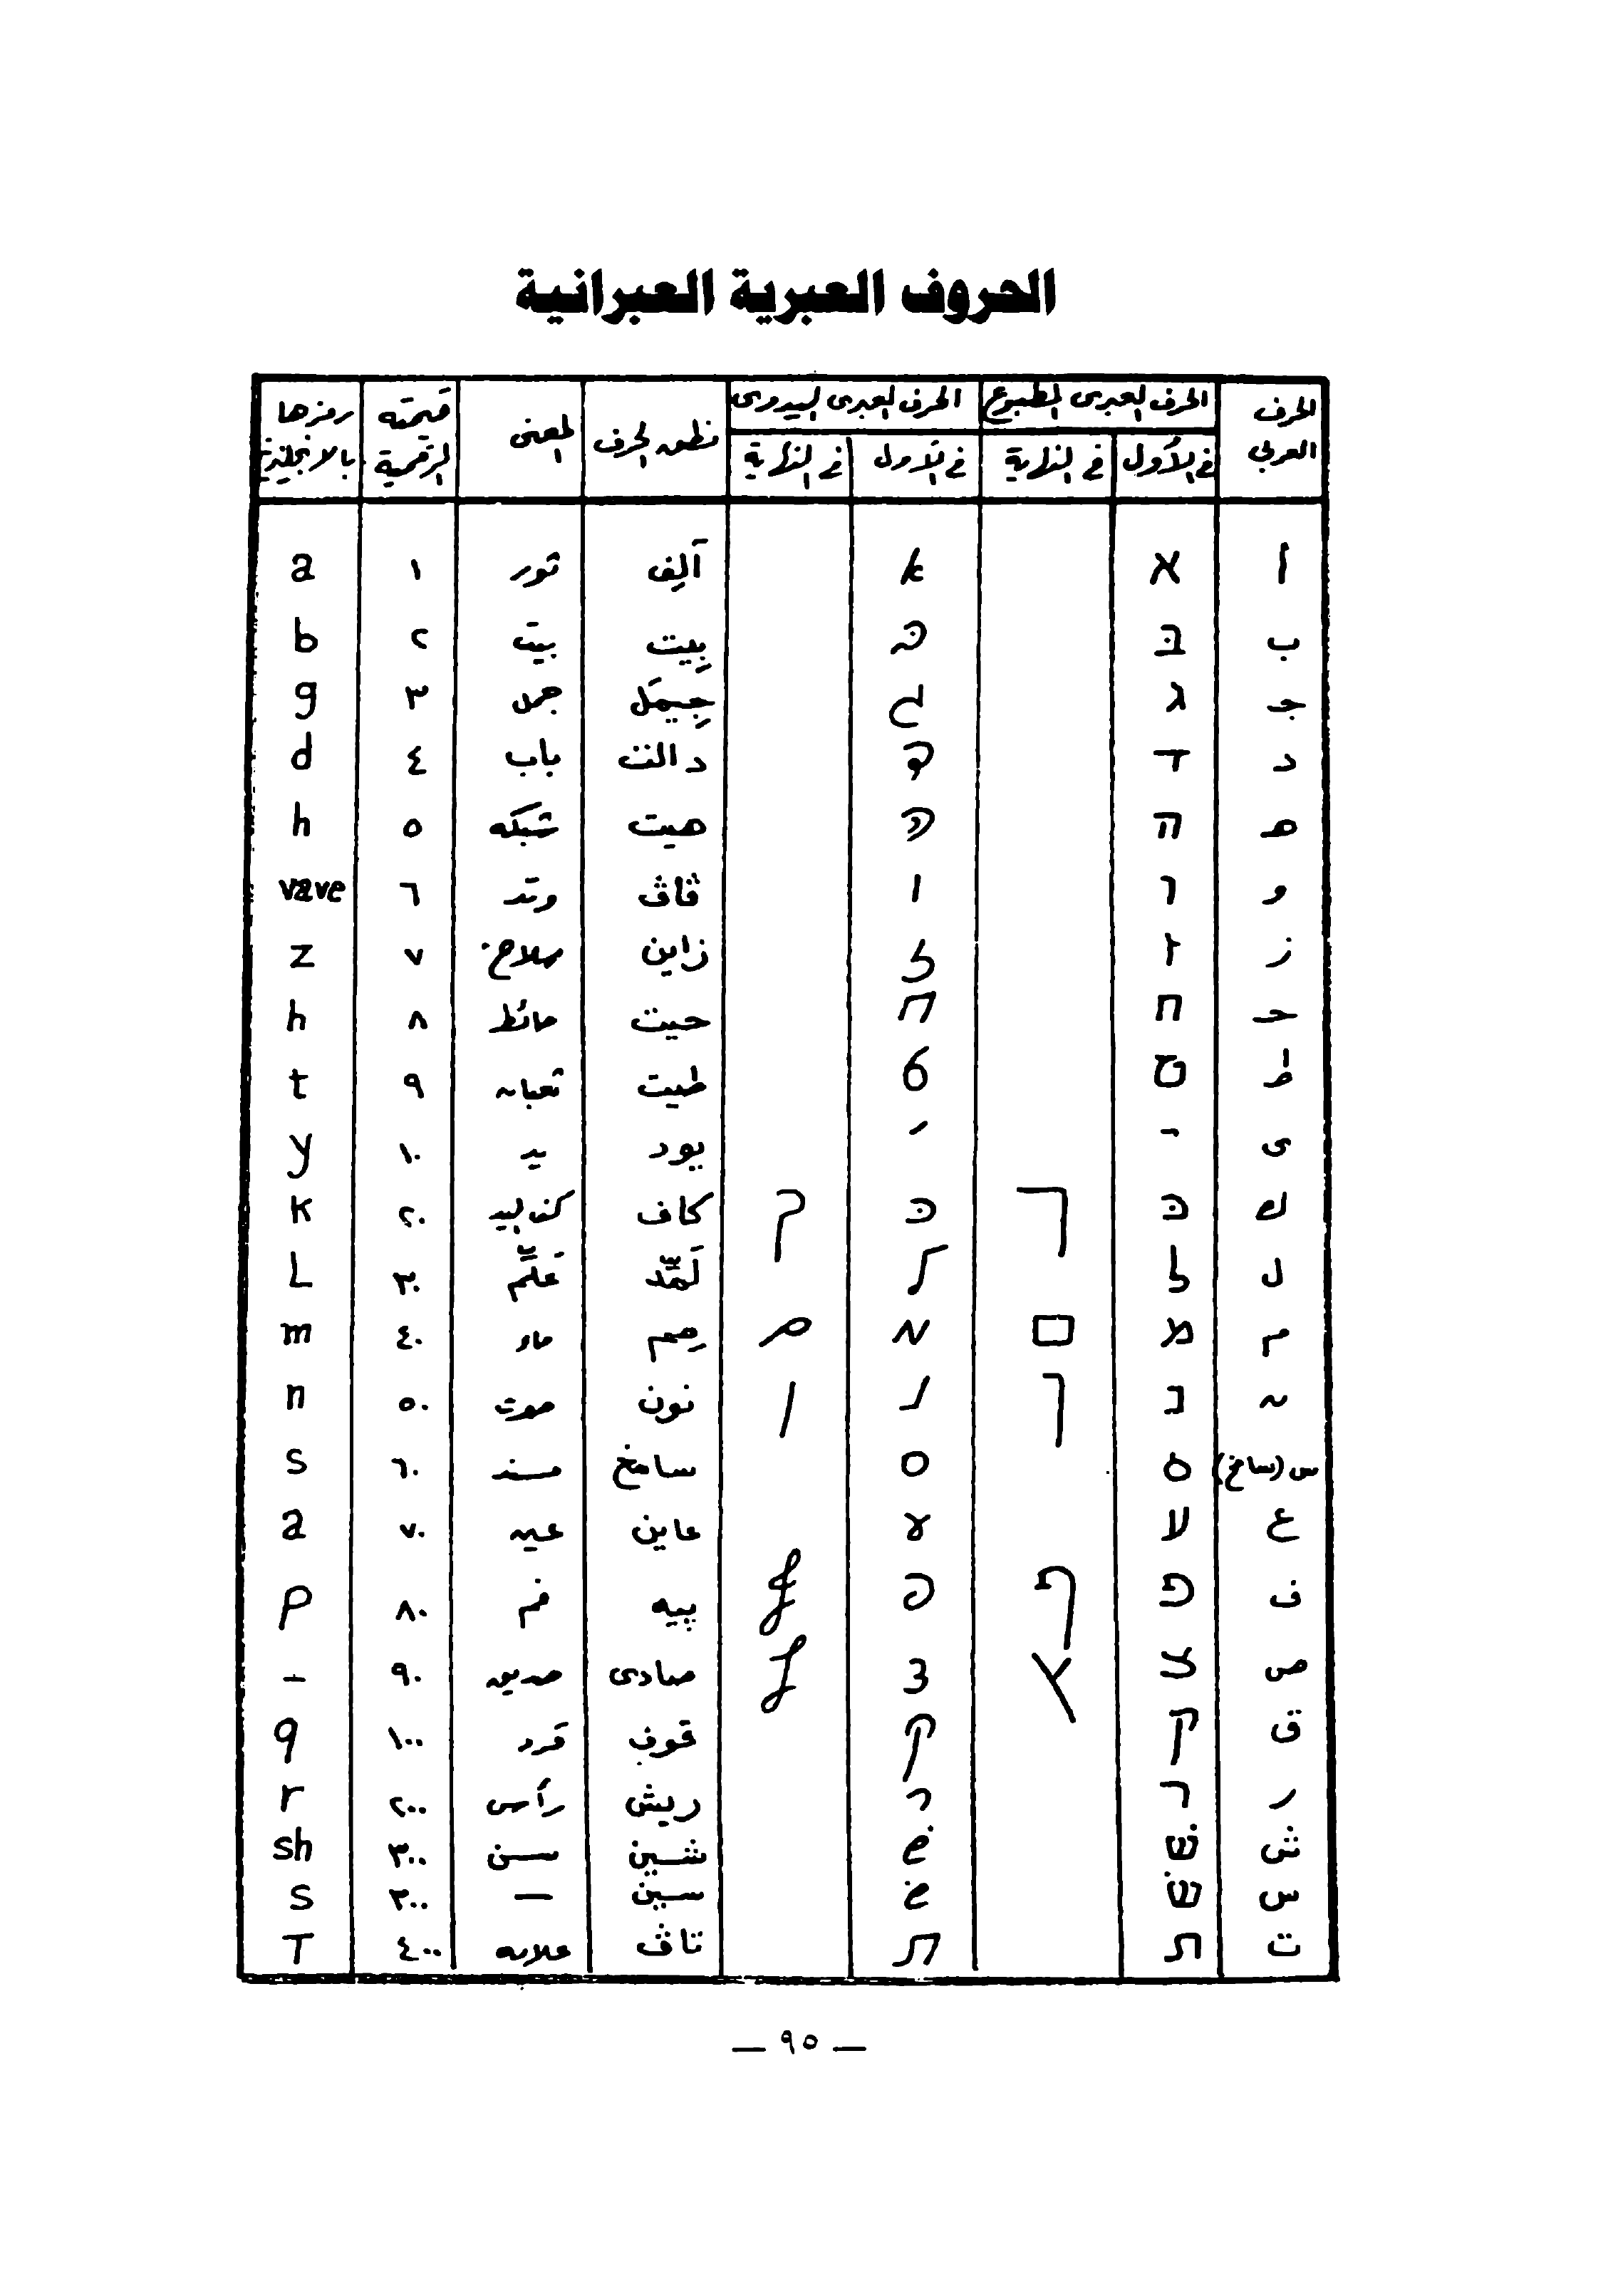 الحروف العبرية العبرانية
الحرف العربى | الحرف العبرى المطبوع | الحرف العبرى اليدوى | نطق الحرف | المعنى | قيمته الرقمية | رمزها بالانجليزية
فى الأول | فى النهاية | فى الأول | فى النهاية
ا א א آلِف ثور ١ a
ب בּ בּ بِيت بيت ٢ b
جـ ג ג جِيمَل جمل ٣ g
د ד ד دالت باب ٤ d
هـ ה ה هيت شبكه ٥ h
و ו ו ڤاڤ وتد ٦ vave
ز ז ז زاين سلاح ٧ z
حـ ח ח حيت حائط ٨ h
ط ט ט طيت ثعبان ٩ t
ى י י يود يد ١٠ y
ك כּ ך כּ ך كاف كف اليد ٢٠ k
ل ל ל لَمِّد عَلِّم ٣٠ L
م מ ם מ ם مِيم ماء ٤٠ m
ن נ ן נ ן نون حوت ٥٠ n
س (سامخ) ס ס سامخ مسند ٦٠ s
ع ע ע عاين عين ٧٠ a
ف פ ף פ ף پيه فم ٨٠ p
ص צ ץ צ ץ صادى صديق ٩٠ –
ق ק ק قوف قرد ١٠٠ q
ر ר ר ريش رأس ٢٠٠ r
ش שׁ שׁ شين سن ٣٠٠ sh
س שׂ שׂ سين — ٣٠٠ s
ت ת ת تاڤ علامه ٤٠٠ T
— ٩٥ —